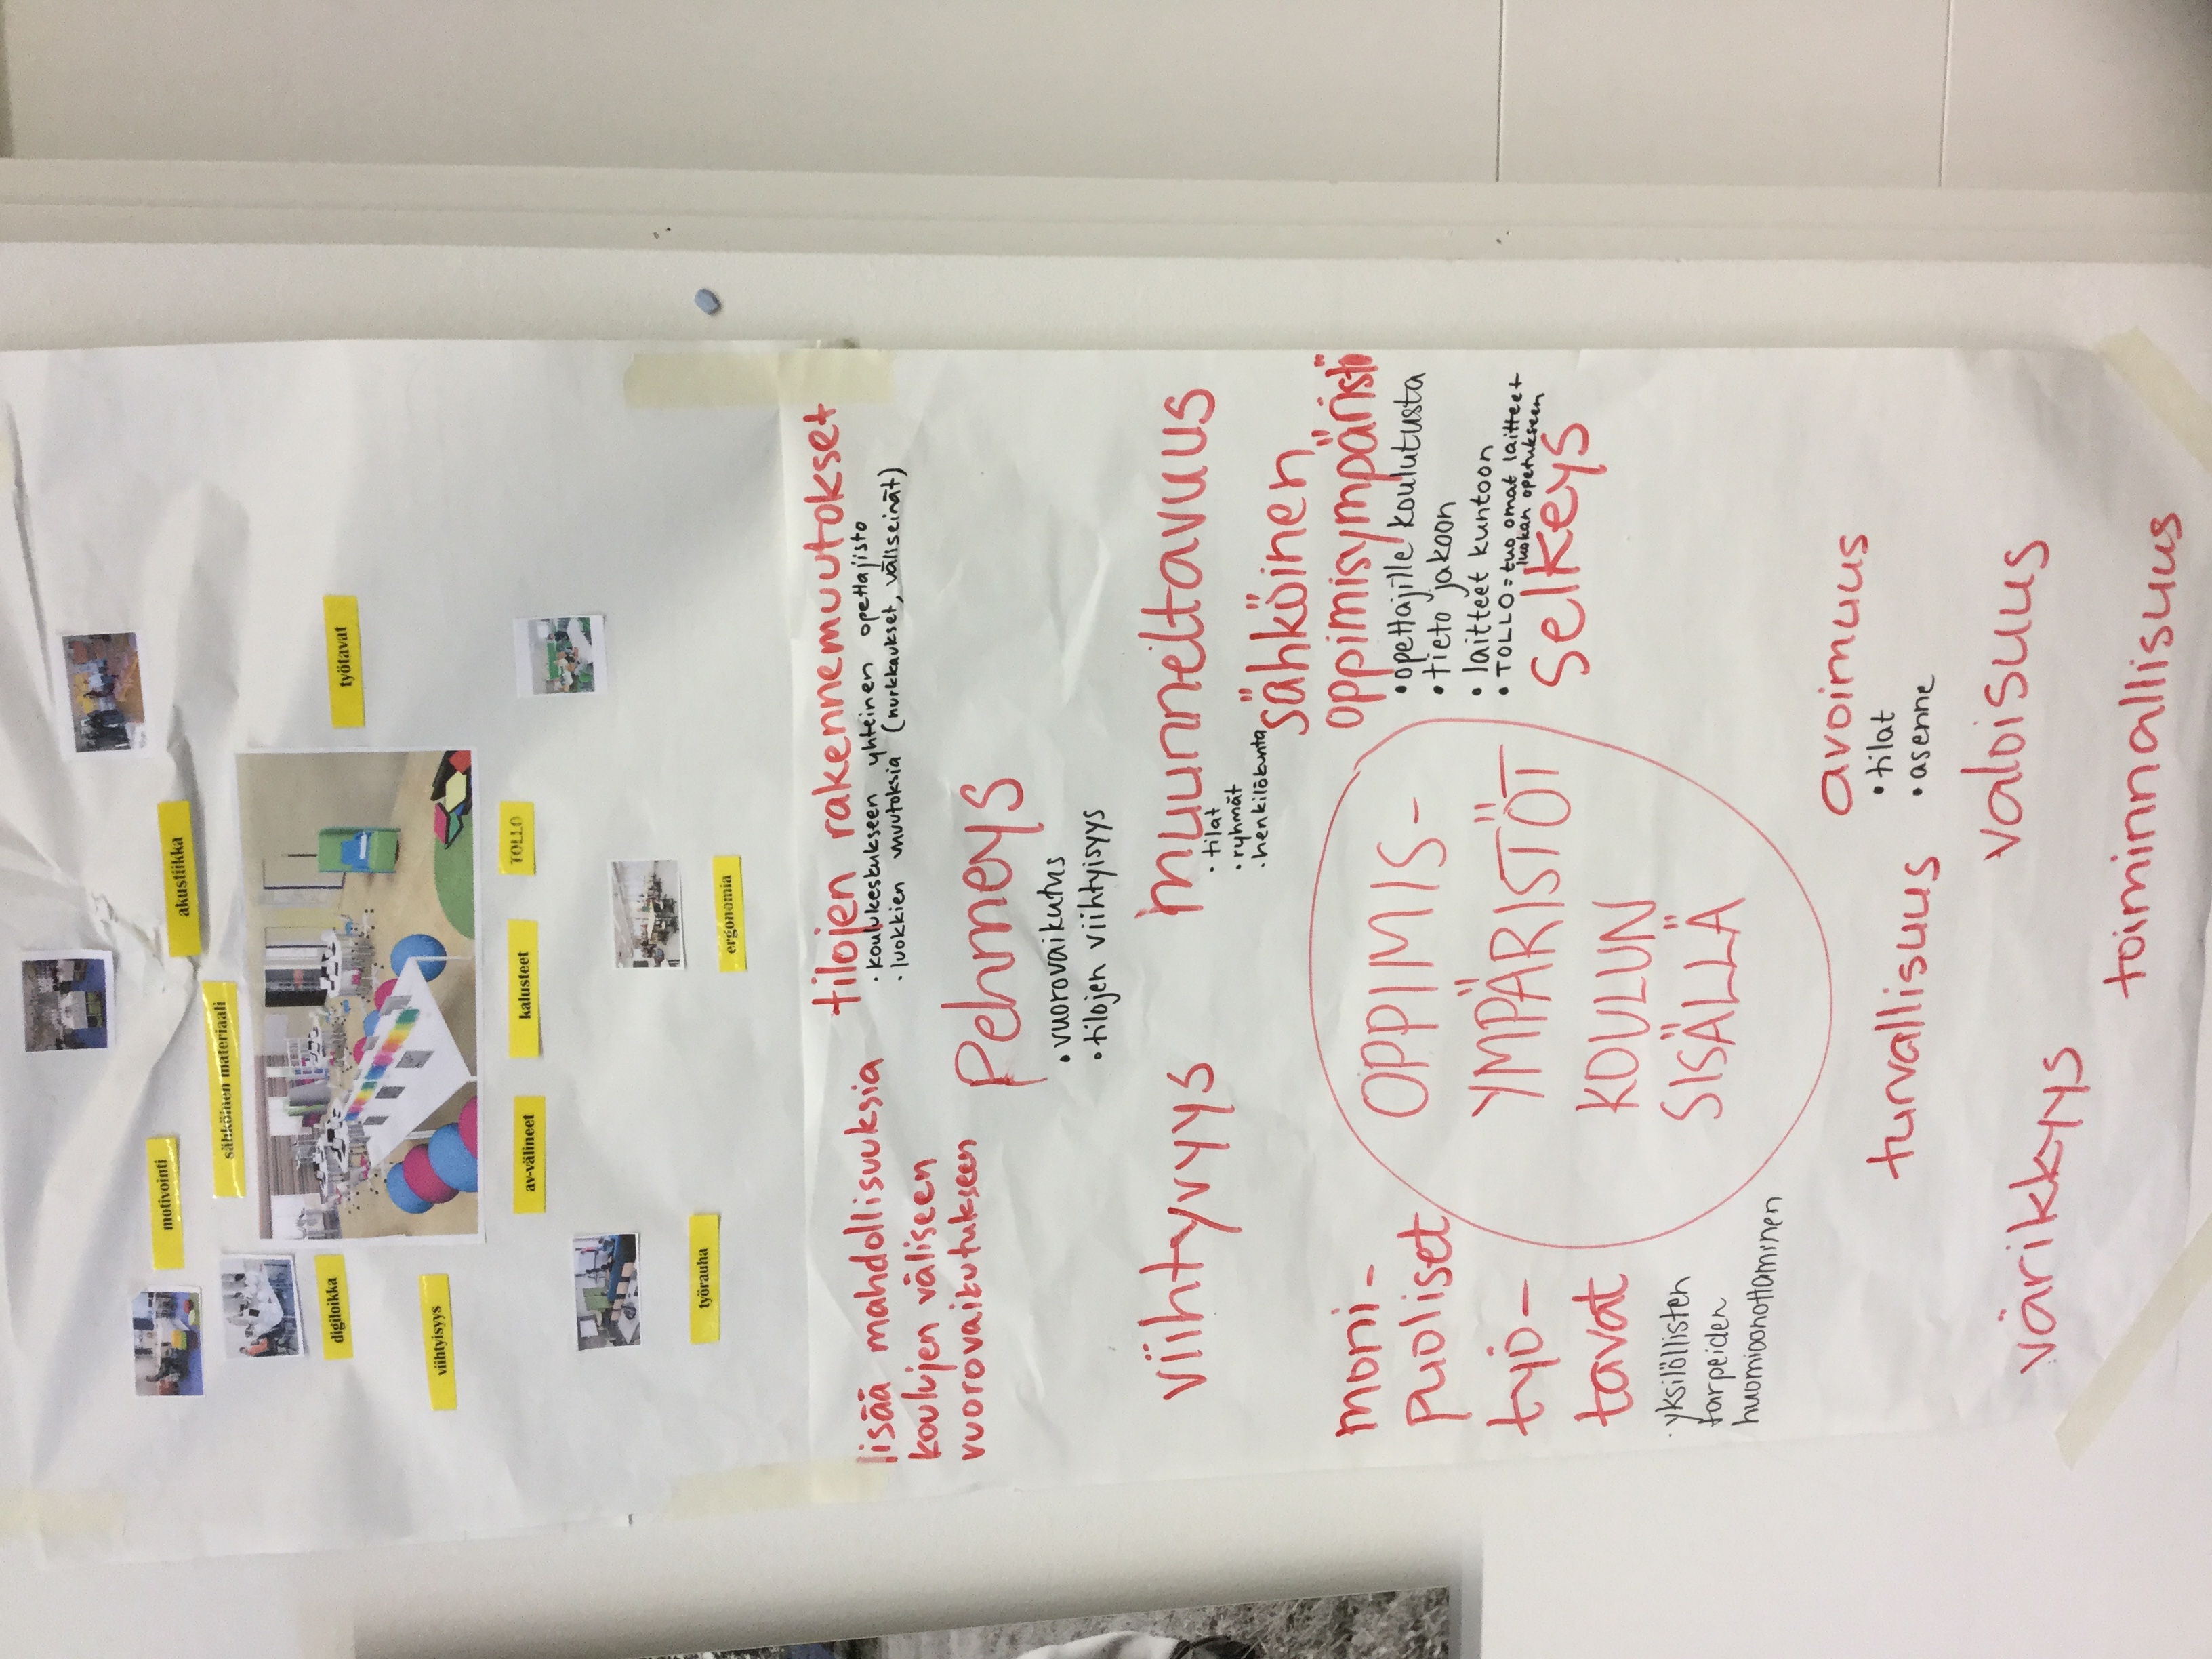 motivointi
sähköinen materiaali
akustiikka
työtavat
digiloikka
viihtyisyys
av-välineet
kalusteet
TOLLO
työrauha
ergonomia
lisää mahdollisuuksia
koulujen väliseen
vuorovaikutukseen
tilojen rakennemuutokset
• koulukeskukseen yhteinen opettajisto
• luokkien muutoksia (nurkkaukset, väliseinät)
Pehmeys
• vuorovaikutus
• tilojen viihtyisyys
viihtyvyys
muunneltavuus
• tilat
• ryhmät
• henkilökunta
sähköinen
oppimisympäristö
• opettajille koulutusta
• tieto jakoon
• laitteet kuntoon
• TOLLO = tuo omat laitteet
luokan opetukseen
selkeys
OPPIMIS-
YMPÄRISTÖT
KOULUN
SISÄLLÄ
moni-
puoliset
työ-
tavat
• yksilöllisten
tarpeiden
huomioonottaminen
turvallisuus
avoimuus
• tilat
• asenne
värikkyys
valoisuus
toiminnallisuus